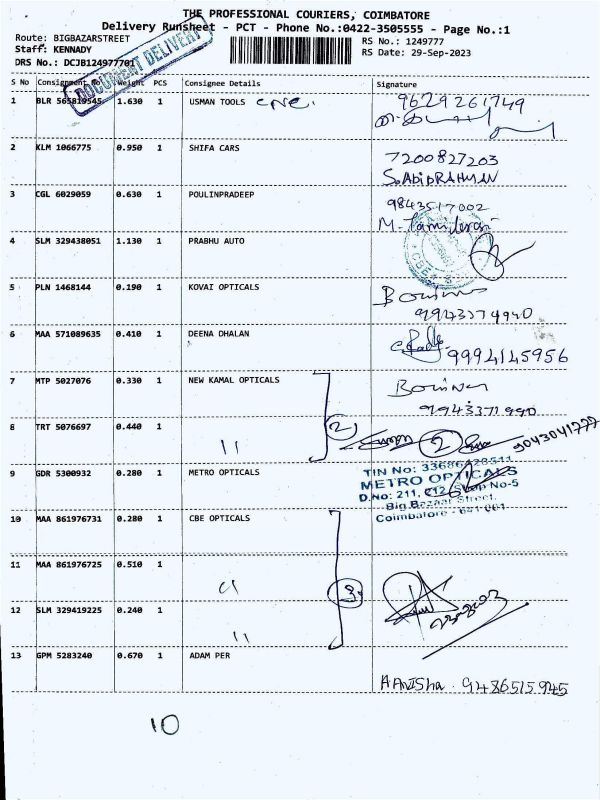 THE PROFESSIONAL COURIERS, COIMBATORE
Delivery Runsheet - PCT - Phone No.:0422-3505555 - Page No.:1
Route: BIGBAZARSTREET
RS No.: 1249777
Staff: KENNADY
RS Date: 29-Sep-2023
DRS No.: DCJB124977701
DOCUMENT DELIVERY
S No Consignment No Weight PCS Consignee Details Signature
1 BLR 565819545 1.630 1 USMAN TOOLS CNC. 9629261749
2 KLM 1066775 0.950 1 SHIFA CARS
7200827203
S.AbiDRAHMAN
3 CGL 6029059 0.630 1 POULINPRADEEP
9843517002
M.
4 SLM 329438051 1.130 1 PRABHU AUTO
5 PLN 1468144 0.190 1 KOVAI OPTICALS
6 MAA 571089635 0.410 1 DEENA DHALAN
9994145956
7 MTP 5027076 0.330 1 NEW KAMAL OPTICALS
8 TRT 5076697 0.440 1
11 2 2
9 GDR 5300932 0.280 1 METRO OPTICALS
TIN No:
METRO OPTICALS
D.No: 211, Shop No-5
Big Bazaar Street,
Coimbatore - 641 001
10 MAA 861976731 0.280 1 CBE OPTICALS
11 MAA 861976725 0.510 1
11 3
12 SLM 329419225 0.240 1
11
13 GPM 5283240 0.670 1 ADAM PER
AANISha. 9486515945
10